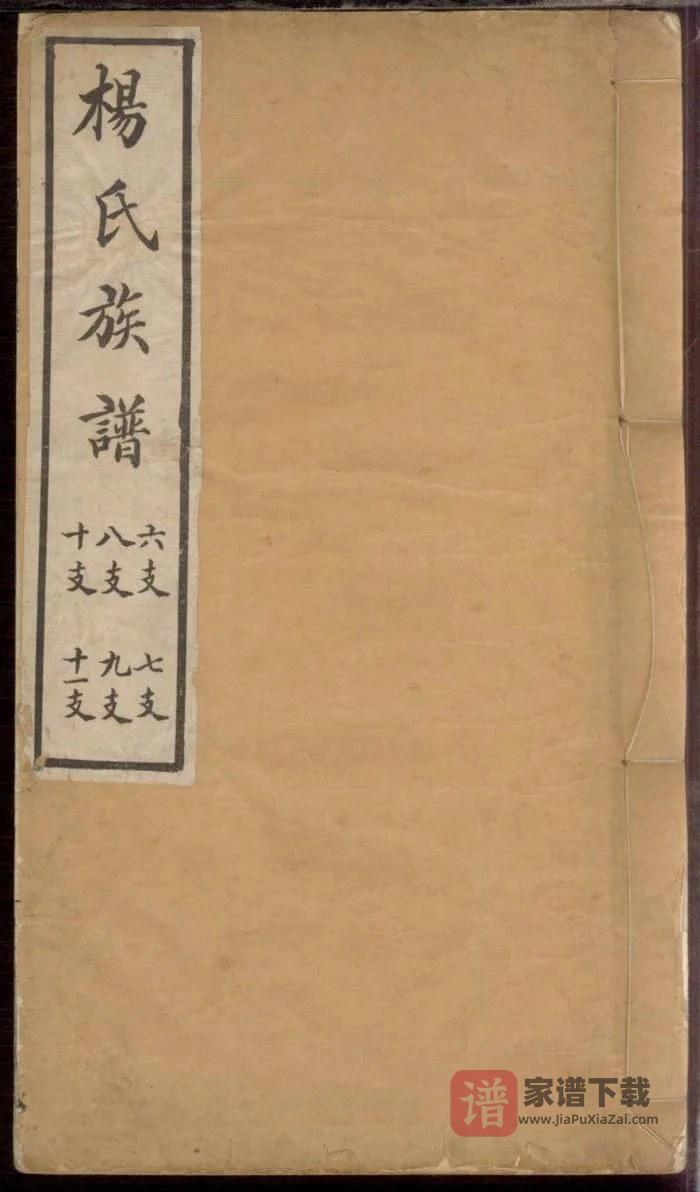 楊氏族譜
六支 七支
八支 九支
十支 十一支
谱 家谱下载
www.JiaPuXiaZai.com